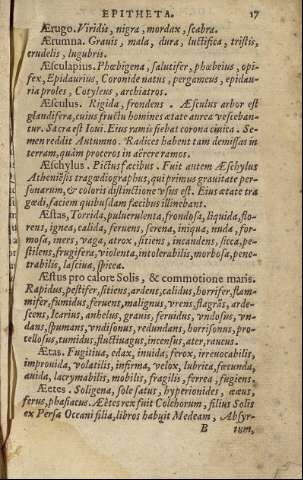 EPITHETA. 17
Ærugo. Viridis, nigra, mordax, scabra.
Ærumna. Grauis, mala, dura, luctifica, tristis,
crudelis, lugubris.
Æsculapius. Phœbigena, salutifer, phœbeius, opi-
fex, Epidaurius, Coronide natus, pergameus, epidau-
ria proles, Cotyleus, archiatros.
Æsculus. Rigida, frondens. Æsculus arbor est
glandifera, cuius fructu homines ætate aurea vesceban-
tur. Sacra est Ioui. Eius ramis fiebat corona ciuica. Se-
men reddit Autumno. Radices habent tam demissas in
terram, quàm proceros in aërere ramos.
Æschylus. Pictus facibus. Fuit autem Æschylus
Atheniẽsis tragœdiographus, cui primus grauitate per-
sonarum, & coloris distinctione vsus est. Eius ætate tra
gœdi, faciem quibusdam fæcibus illinebant.
Æstas, Torrida, puluerulenta, frondosa, liquida, flo-
rens, ignea, calida, feruens, serena, iniqua, nuda, for-
mosa, iners, vaga, atrox, sitiens, incandens, sicca, pe-
stilens, frugifera, violenta, intolerabilis, morbosa, pene-
trabilis, lasciua, spicea.
Æstus pro calore Solis, & commotione maris.
Rapidus, pestifer, sitiens, ardens, calidus, horrifer, flam-
mifer, fumidus, feruens, malignus, vrens, flagrãs, arde-
scens, Icarius, anhelus, grauis, feruidus, vndosus, vn-
dans, spumans, vndisonus, redundans, horrisonus, pro-
cellosus, tumidus, fluctiuagus, incensus, ater, raucus.
Ætas. Fugitiua, edax, inuida, ferox, irreuocabilis,
improuida, volatilis, infirma, velox, lubrica, fœcunda,
auida, lacrymabilis, mobilis, fragilis, ferrea, fugiens.
Æetes. Soligena, sole satus, hyperioides, æœus,
ferus, phasiacus. Æëtes rex fuit Colchorum, filius Solis
ex Persa Oceani filia, libros habuit Medeam, Absyr-
B ium,